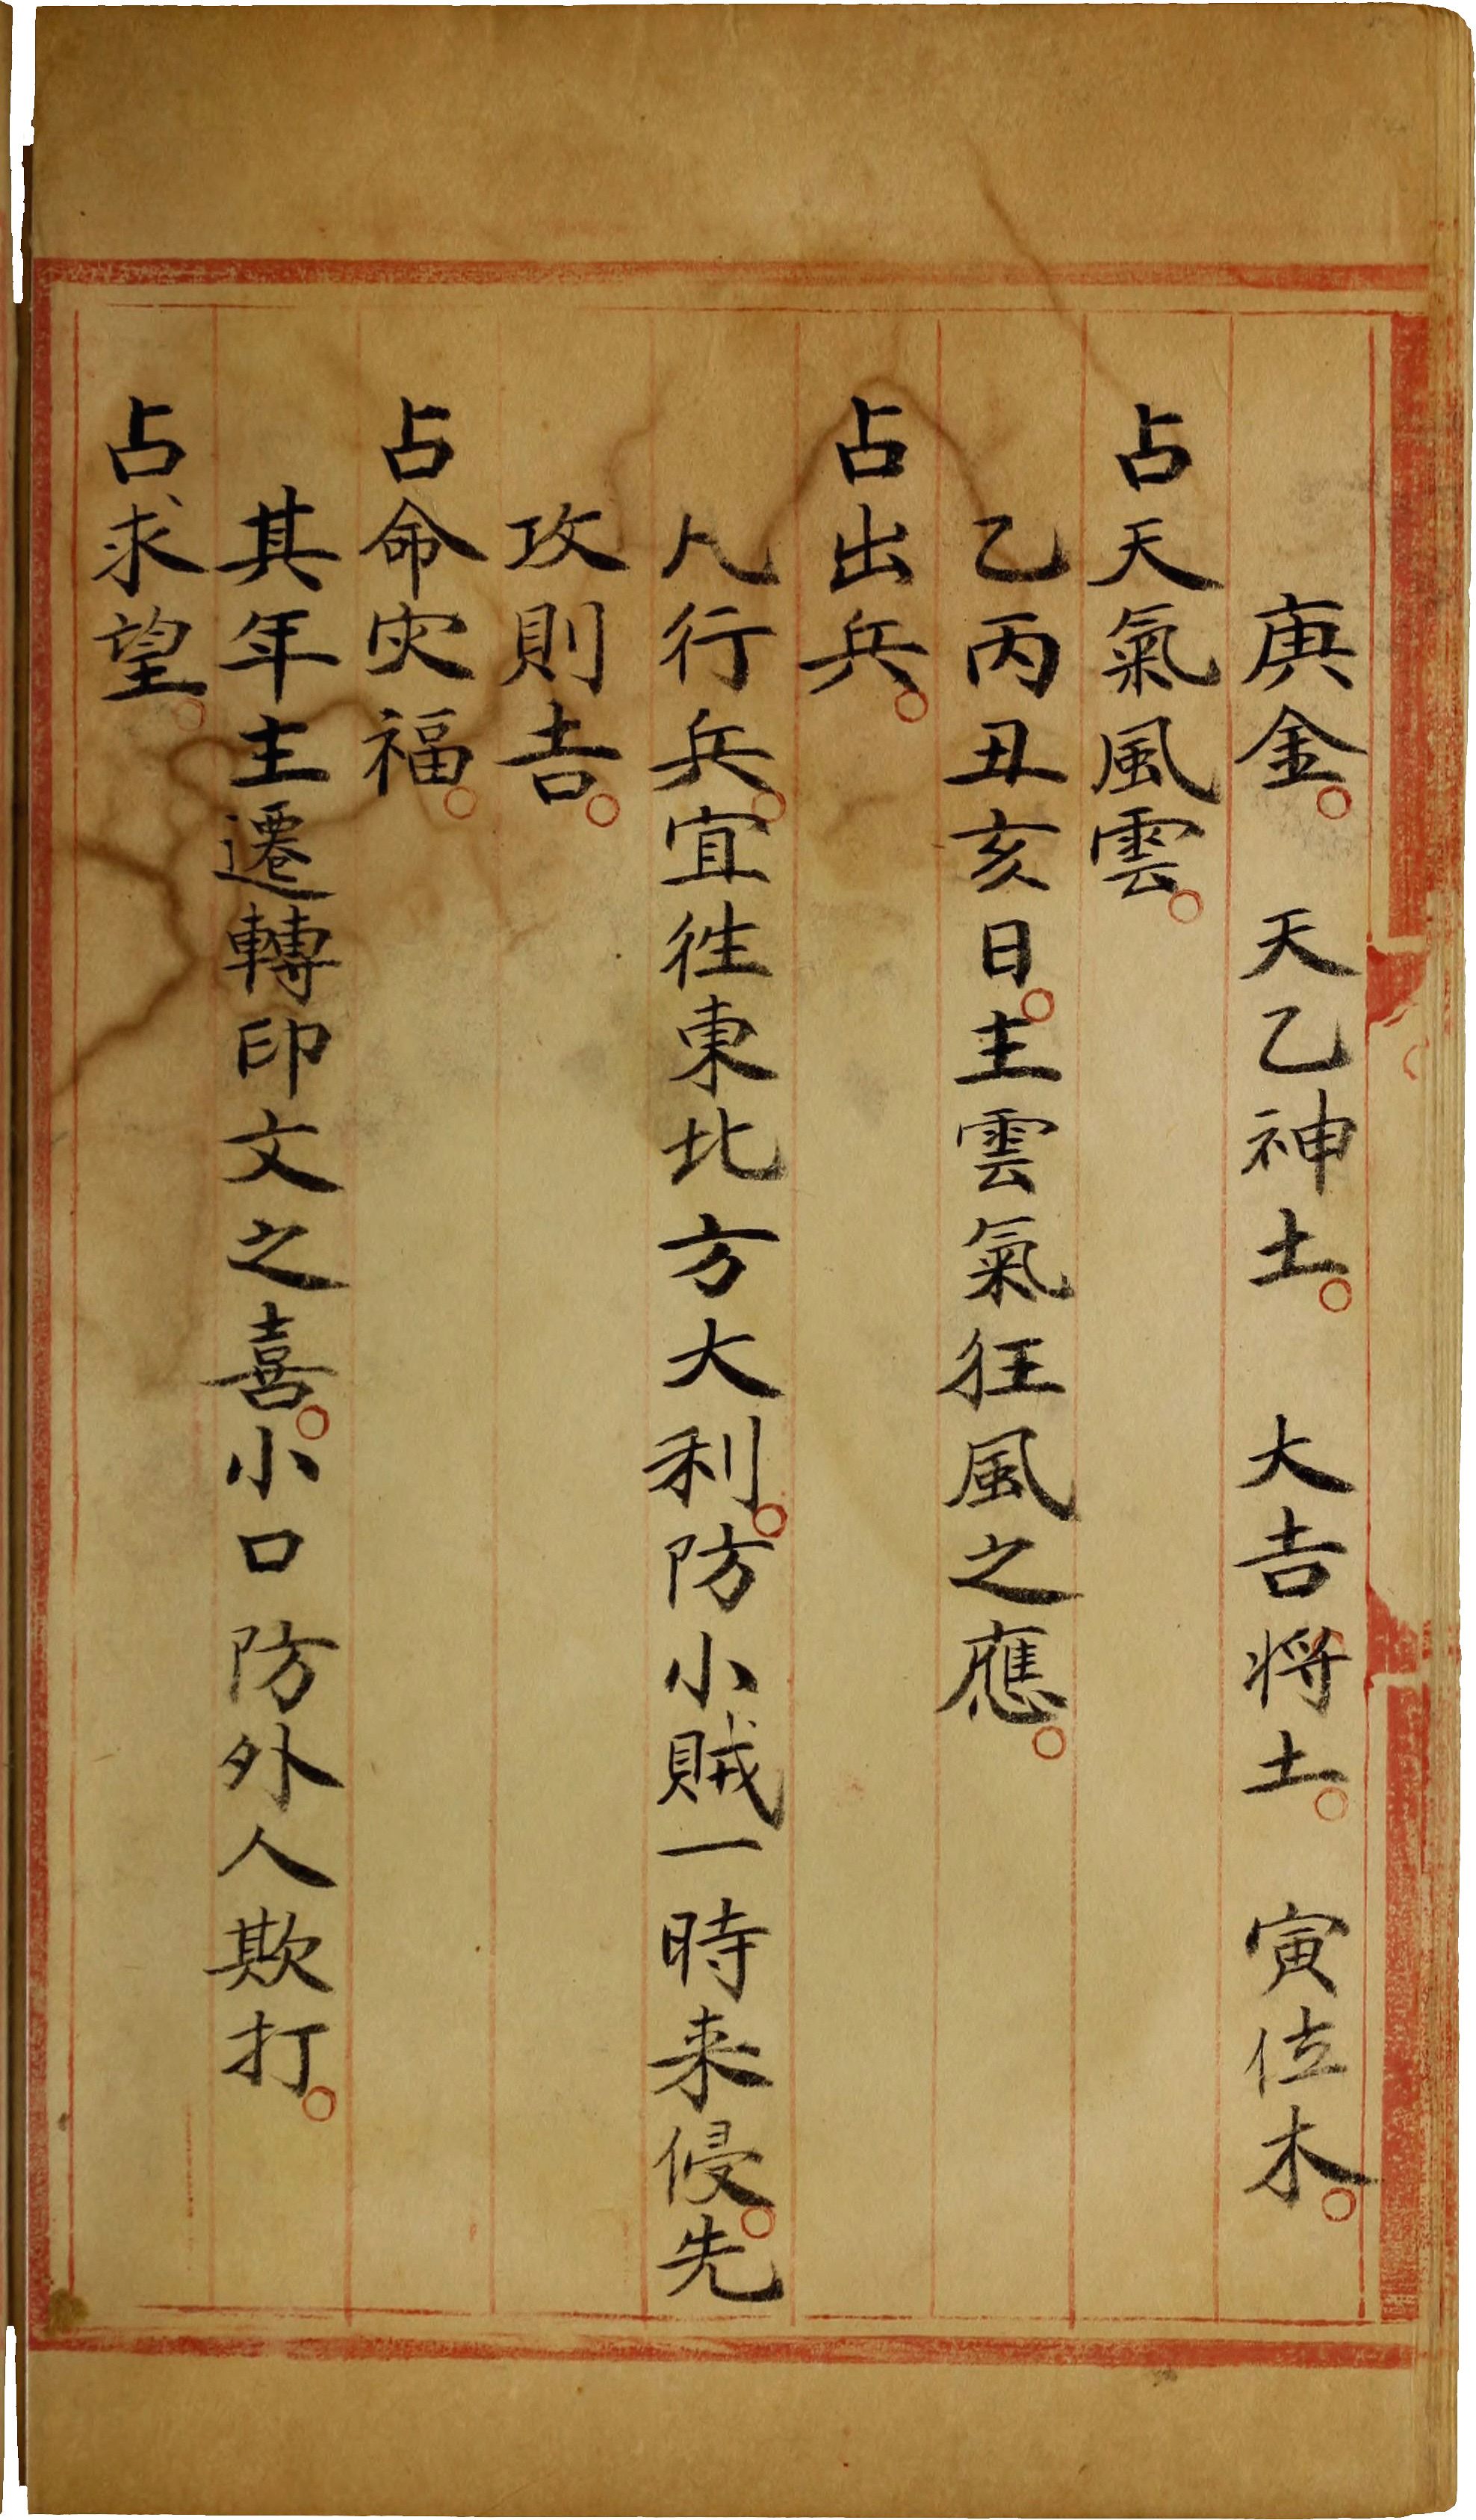 庚金。　天乙神土。　大吉将土。　寅位木。
占天氣風雲。
乙丙丑亥日。主雲氣狂風之應。
占出兵。
凡行兵。宜徃東北方大利。防小賊一時来侵。先
攻則吉。
占命灾福。
其年主遷轉印文之喜。小口防外人欺打。
占求望。